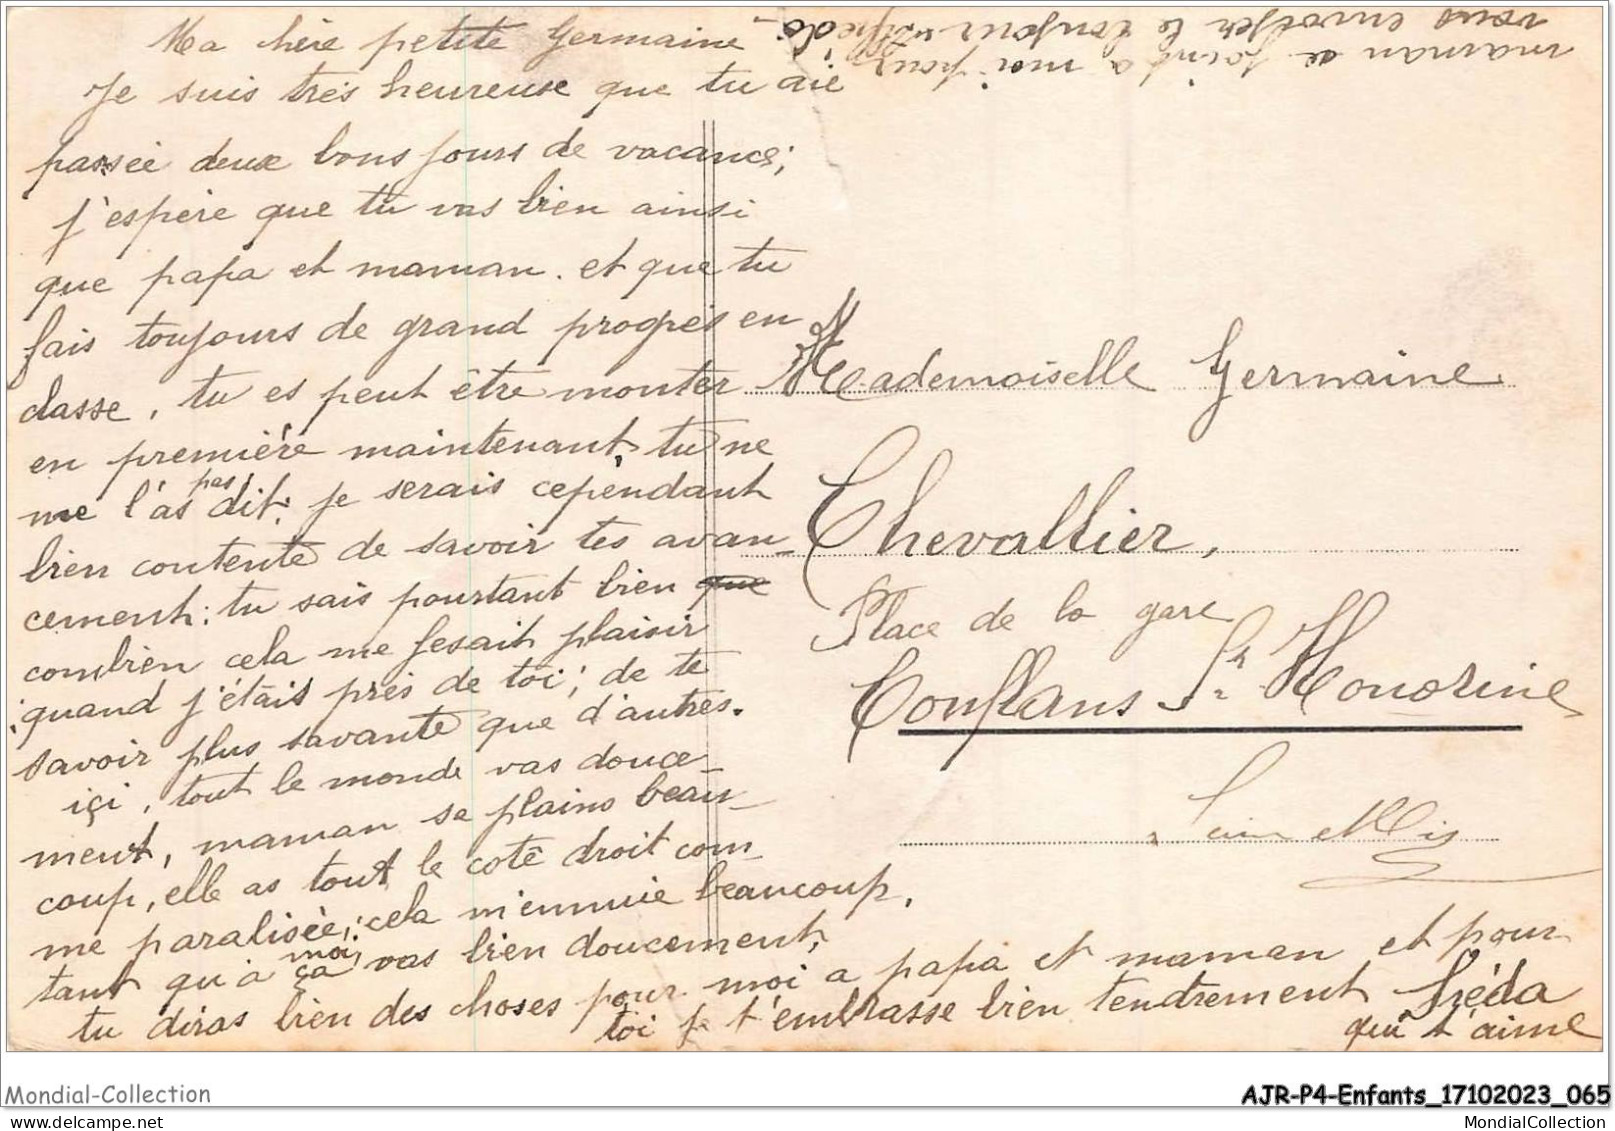 Ma chère petite Germaine
Je suis très heureuse que tu aie
passée deux bons jours de vacance;
j'espère que tu vas bien ainsi
que papa et maman. et que tu
fais toujours de grand progrès en
classe, tu es peut être monter
en première maintenant, tu ne
me l'as pas dit; je serais cependant
bien contente de savoir tes avan-
cement; tu sais pourtant bien que
combien cela me fesait plaisir
quand j'étais près de toi; de te
savoir plus savante que d'autres.
içi, tout le monde vas douce-
ment, maman se plains beau-
coup, elle as tout le coté droit com-
me paralisée; cela m'ennuie beaucoup,
tant qu'à moi, ça vas bien doucement,
tu diras bien des choses pour moi a papa et maman et pour
toi je t'embrasse bien tendrement Fréda
qui t'aime
maman ce joint a moi pour
vous envoyer le bonjour
Mademoiselle Germaine
Chevallier,
Place de la gare
Conflans Ste Honorine
Seine et Oise
Mondial-Collection
AJR-P4-Enfants_17102023_065
delcampe.net
MondialCollection